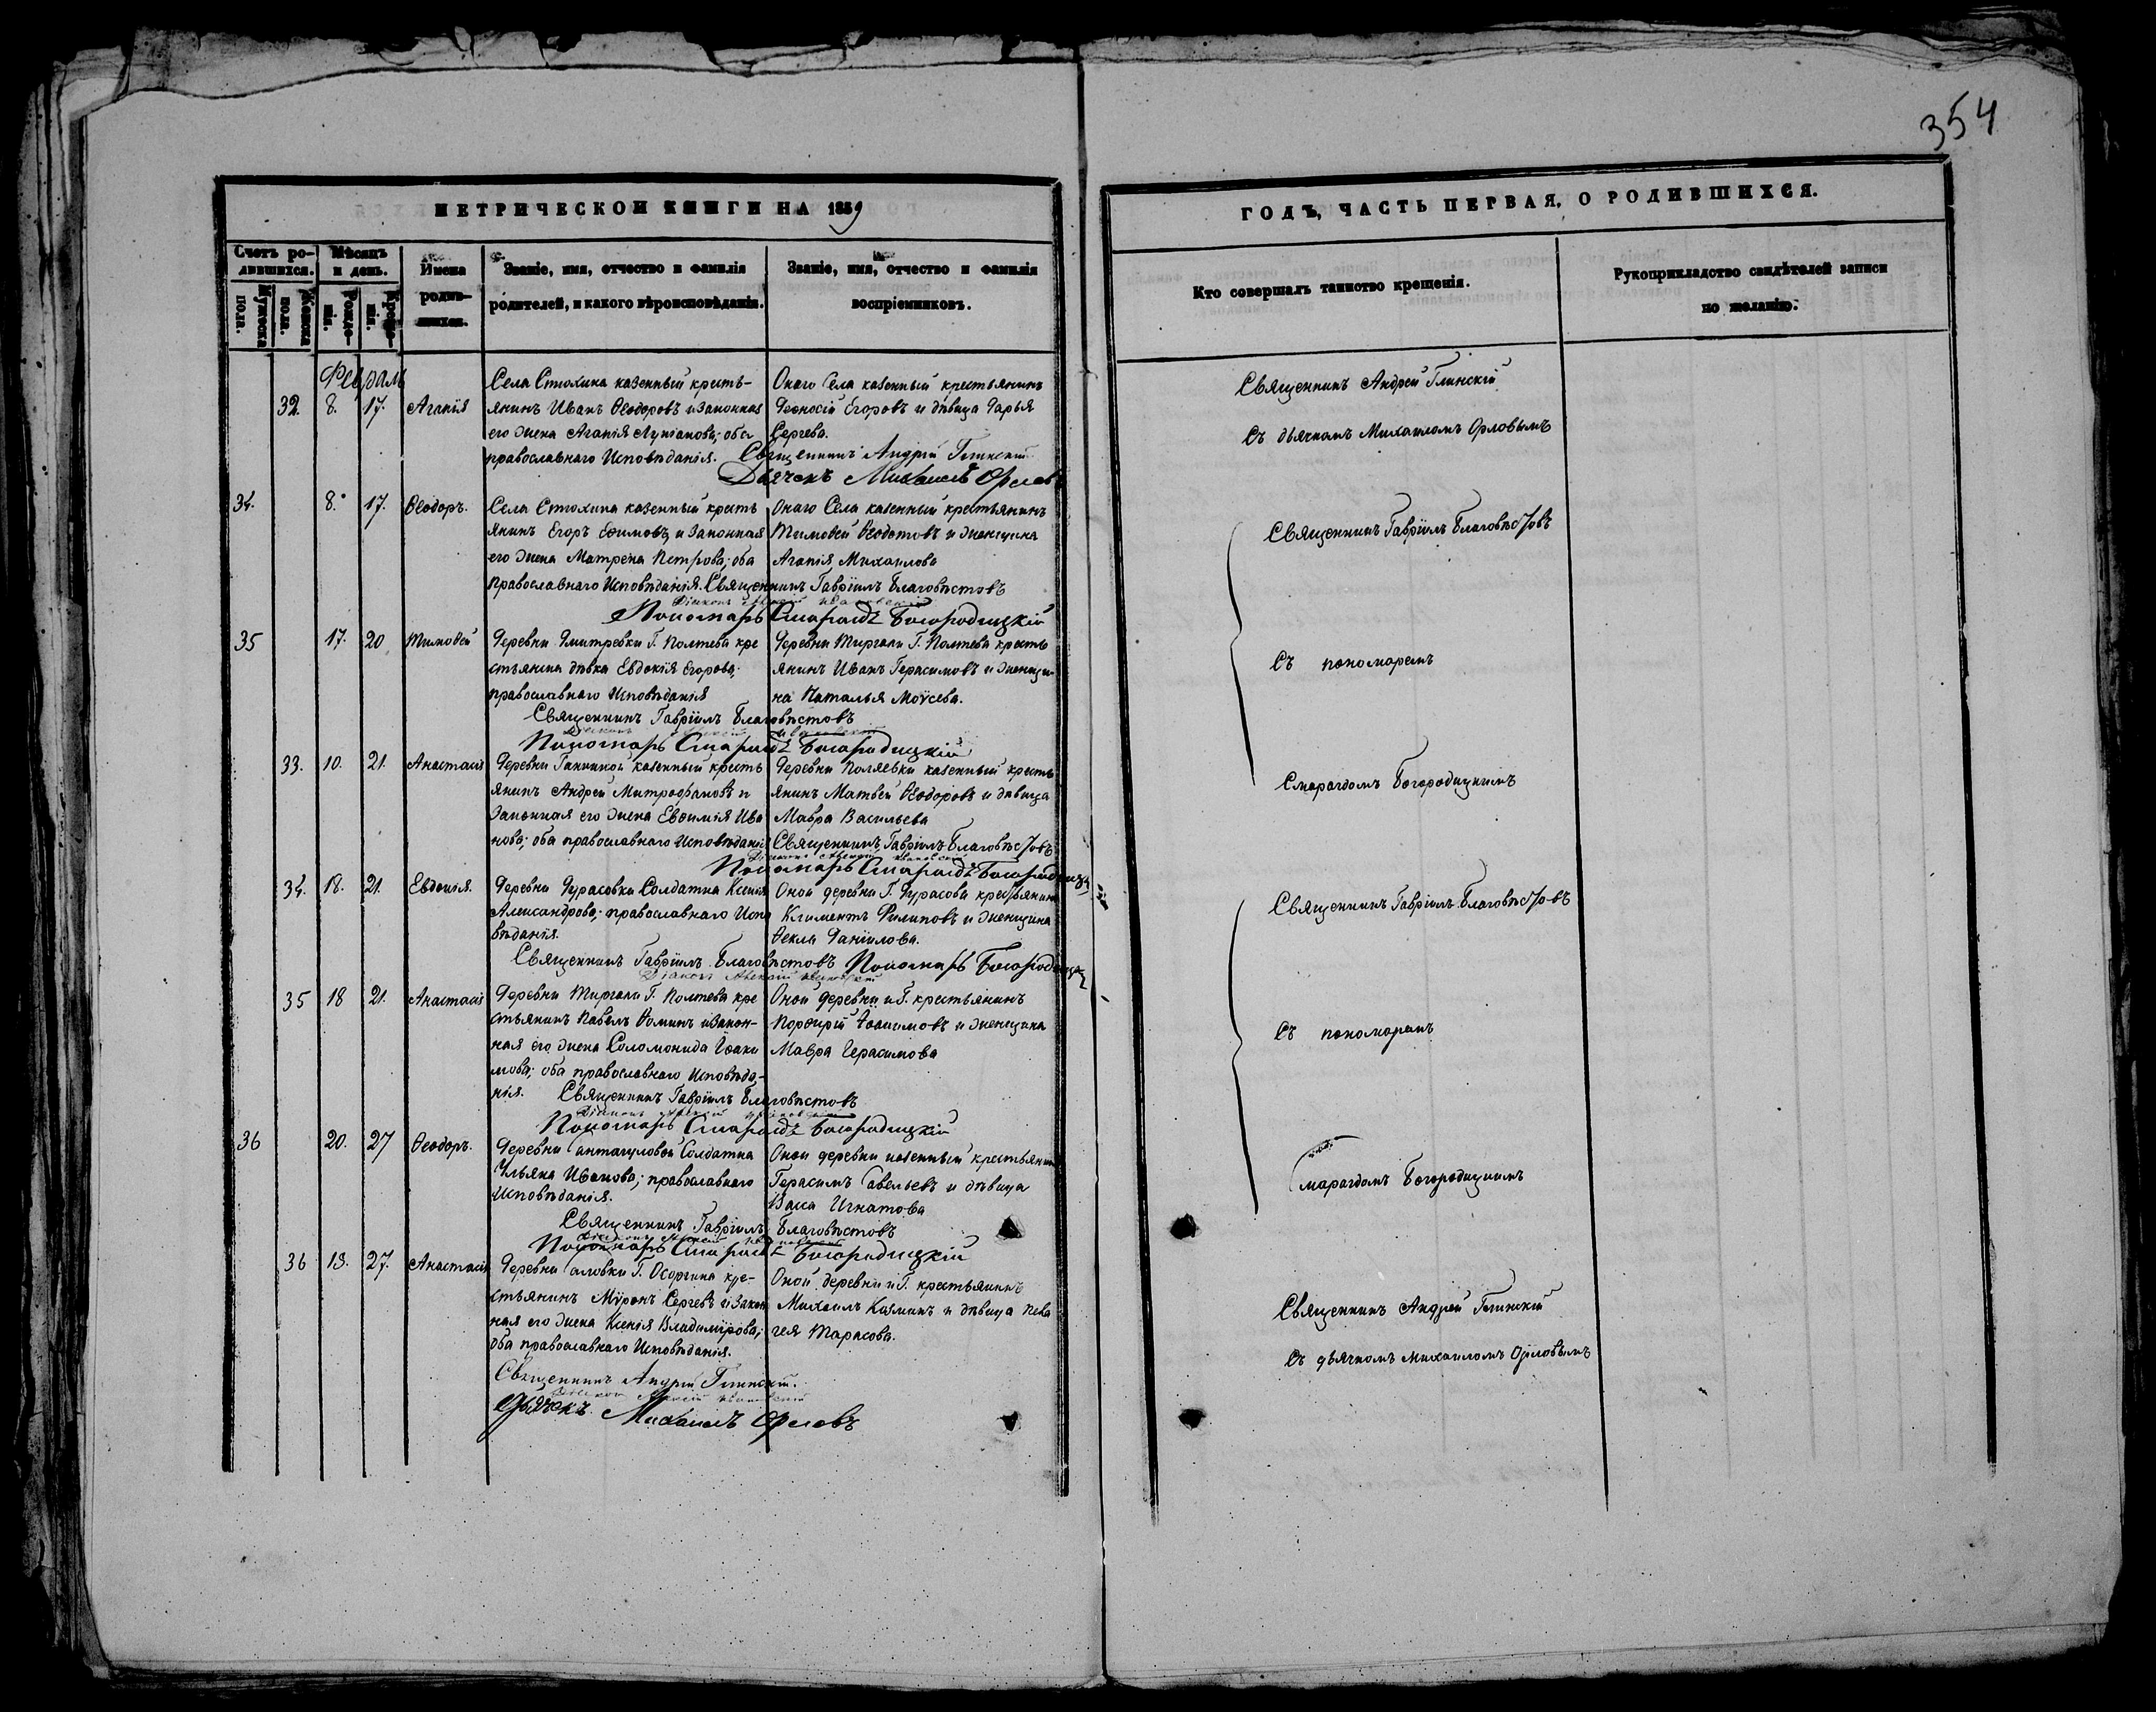 354
МЕТРИЧЕСКОЙ КНИГИ НА 1859
ГОДЪ, ЧАСТЬ ПЕРВАЯ, О РОДИВШИХСЯ.
Счетъ ро-
дившихся.
Мужеска
пола.
Женска
пола.
Мѣсяцъ
и день.
Рожде-
нія.
Креще-
нія.
Имена
родив-
шихся.
Званіе, имя, отчество и фамилія
родителей, и какого вѣроисповѣданія.
Званіе, имя, отчество и фамилія
воспріемниковъ.
Кто совершалъ таинство крещенія.
Рукоприкладство свидѣтелей записи
по желанію.
Февраль
32. 8. 17. Агапія
Села Стюхина казенный кресть-
янинъ Иванъ Ѳеодоровъ и законная
его жена Агапія Лукіанова; оба
православнаго Исповѣданія.
Онаго Села казенный крестьянинъ
Діонисій Егоровъ и дѣвица Дарья
Сергева.
Священникъ Андрей Глинскій
Дьячекъ Михаилъ Орловъ
Священникъ Андрей Глинскій
Съ дьячкомъ Михаиломъ Орловымъ
34. 8. 17. Ѳеодоръ.
Села Стюхина казенный кресть
янинъ Егоръ Ефимовъ и законная
его жена Матрена Петрова; оба
православнаго Исповѣданія.
Онаго Села казенный крестьянинъ
Тимоѳей Ѳеодотовъ и женщина
Агапія Михаилова
Священникъ Гавріилъ Благовѣстовъ
Пономарь Смарагдъ Богородицкій
Священникъ Гавріилъ Благовѣстовъ
35 17. 20 Тимоѳей
Деревни Дмитревки Г. Полтева кре
стьянска дѣвка Евдокія Егорова;
православнаго Исповѣданія
Деревни Тиргали Г. Полтева кресть
янинъ Иванъ Герасимовъ и женщи-
на Наталья Моѵсева.
Священникъ Гавріилъ Благовѣстовъ
Пономарь Смарагдъ Богородицкій
Съ пономаремъ
33. 10. 21. Анастасія
казенный кресть
янинъ Андрей Митрофановъ и
законная его жена Евѳимія Ива
нова; оба православнаго Исповѣданія
Деревни Поляевки казенный кресть
янинъ Матвей Ѳеодоровъ и дѣвица
Мавра Васильева
Священникъ Гавріилъ Благовѣстовъ
Пономарь Смарагдъ Богородицкій
Смарагдомъ Богородицкимъ
34. 18. 21. Евдокія.
Деревни Дурасовки Солдатка Ксенія
Александрова; православнаго Испо
вѣданія.
Оной деревни Г. Дурасова крестьянинъ
Климентъ Филиповъ и женщина
Ѳекла Даніилова.
Священникъ Гавріилъ Благовѣстовъ Пономарь Богородицкій
Священникъ Гавріилъ Благовѣстовъ
35 18 21. Анастасія
Деревни Тиргали Г. Полтева кре
стьянинъ Павелъ Ѳоминъ и закон-
ная его жена Соломонида Іоаки
мова; оба православнаго Исповѣда-
нія.
Оной деревни и Г. крестьянинъ
Порфирій Іоакимовъ и женщина
Мавра Герасимова
Священникъ Гавріилъ Благовѣстовъ
Пономарь Смарагдъ Богородицкій
Съ пономаремъ
36 20. 27 Ѳеодоръ.
Деревни Солдатка
Ульяна Иванова; православнаго
Исповѣданія.
Оной деревни казенный крестьянинъ
Герасимъ Савельевъ и дѣвица
Васса Игнатова
Священникъ Гавріилъ Благовѣстовъ
Пономарь Смарагдъ Богородицкій
Смарагдомъ Богородицкимъ
36 13. 27. Анастасія
Деревни Саловки Г. Осоргина кре-
стьянинъ Мѵронъ Сергевъ и закон
ная его жена Ксенія Владимірова;
оба православнаго Исповѣданія.
Оной деревни и Г. крестьянинъ
Михаилъ Казминъ и дѣвица Пела
гея Тарасова.
Священникъ Андрей Глинскій.
Дьячекъ Михаилъ Орловъ
Священникъ Андрей Глинскій
Съ дьячкомъ Михаиломъ Орловымъ